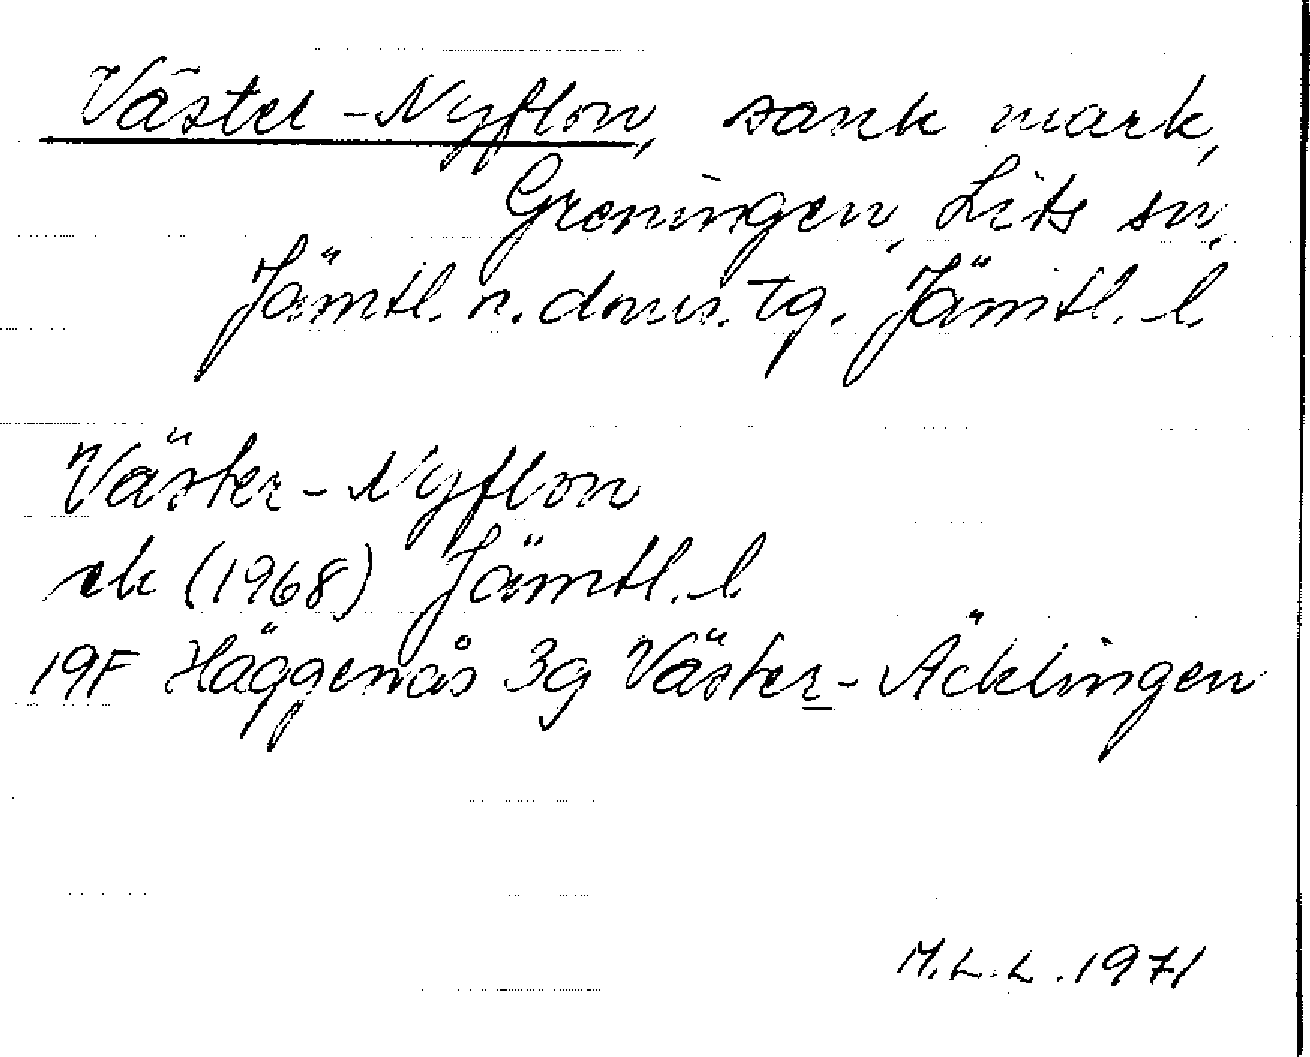 Väster-Nyflon, sank mark,
Greningen, Lits sn,
Jämtl. n. doms. tg. Jämtl. l.
Väster-Nyflon
ek (1968) Jämtl. l
19F Häggenås 3g Väster-Äcklingen
M.L.L. 1971